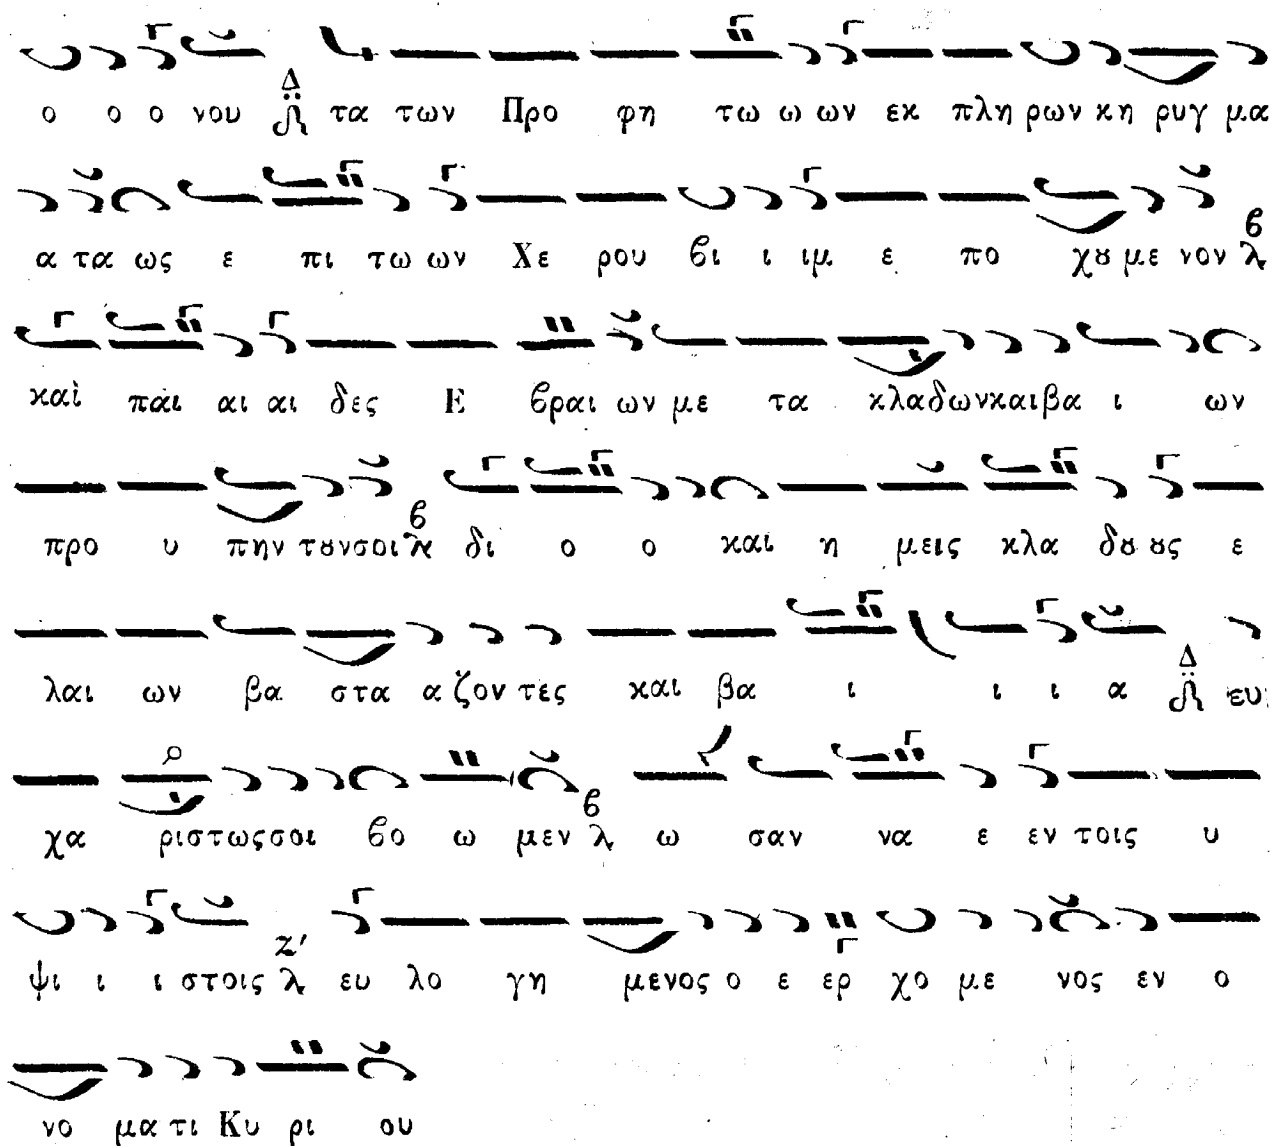 ο ο ο νου Δ τα των Προ φη τω ω ων εκ πλη ρων κη ρυγ μα
α τα ως ε πι τω ων Χε ρου βι ι ιμ ε πο χȣ με νον λ β
και παι αι αι δες Ε βραι ων με τα κλαδωνκαιβα ι ων
προ υ πην τȣνσοι λ β δι ο ο και η μεις κλα δȣ ȣς ε
λαι ων βα στα α ζον τες και βα ι ι ι α Δ ευ
χα ριστωςσοι βο ω μεν λ β ω σαν να ε εν τοις υ
ψι ι ι στοις λ Ζ' ευ λο γη μενος ο ε ερ χο με νος εν ο
νο μα τι Κυ ρι ου